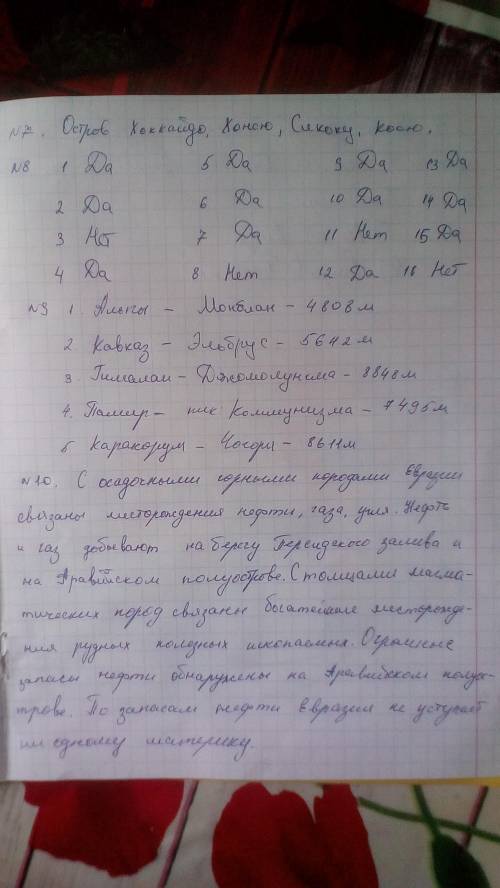 №7. Остров Хоккайдо, Хонсю, Сикоку, Кюсю.
№8 1 Да 5 Да 9 Да 13 Да
2 Да 6 Да 10 Да 14 Да
3 Нет 7 Да 11 Нет 15 Да
4 Да 8 Нет 12 Да 16 Нет
№9 1. Альпы – Монблан – 4808 м
2. Кавказ – Эльбрус – 5642 м
3. Гималаи – Джомолунгма – 8848 м
4. Памир – пик Коммунизма – 7495 м
5 Каракорум – Чогори – 8611 м
№10. С осадочными горными породами Евразии
связаны месторождения нефти, газа, угля. Нефть
и газ добывают на берегу Персидского залива и
на Аравийском полуострове. С толщами магма-
тических пород связаны богатейшие месторожде-
ния рудных полезных ископаемых. Огромные
запасы нефти обнаружены на Аравийском полуос-
трове. По запасам нефти Евразия не уступает
ни одному материку.